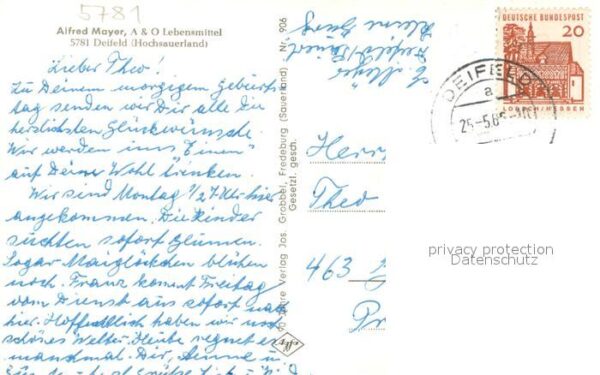 5781
Alfred Mayer, A & O Lebensmittel
5781 Deifeld (Hochsauerland)
Lieber Theo!
Zu Deinem morgigem Geburts
tag senden wir Dir alle die
herzlichsten Glückwünsche.
Wir werden uns "Einen"
auf Deiner Wohl trinken.
Wir sind Montag 1/2 7 Uhr hier
angekommen. Die Kinder
suchten sofort Blumen.
Sogar Maiglöckchen blühen
noch. Franz kommt Freitag
vom Dienst aus sofort nach
hier. Hoffentlich haben wir noch
schönes Wetter. Heute regnet es
manchmal. Dir, Änne u
Nr. 906
10 Jahre Verlag Jos. Grobbel, Fredeburg (Sauerland)
Gesetzl. gesch.
Herrn
Theo
463
DEUTSCHE BUNDESPOST
20
LORSCH/HESSEN
DEIFELD
a
privacy protection
Datenschutz